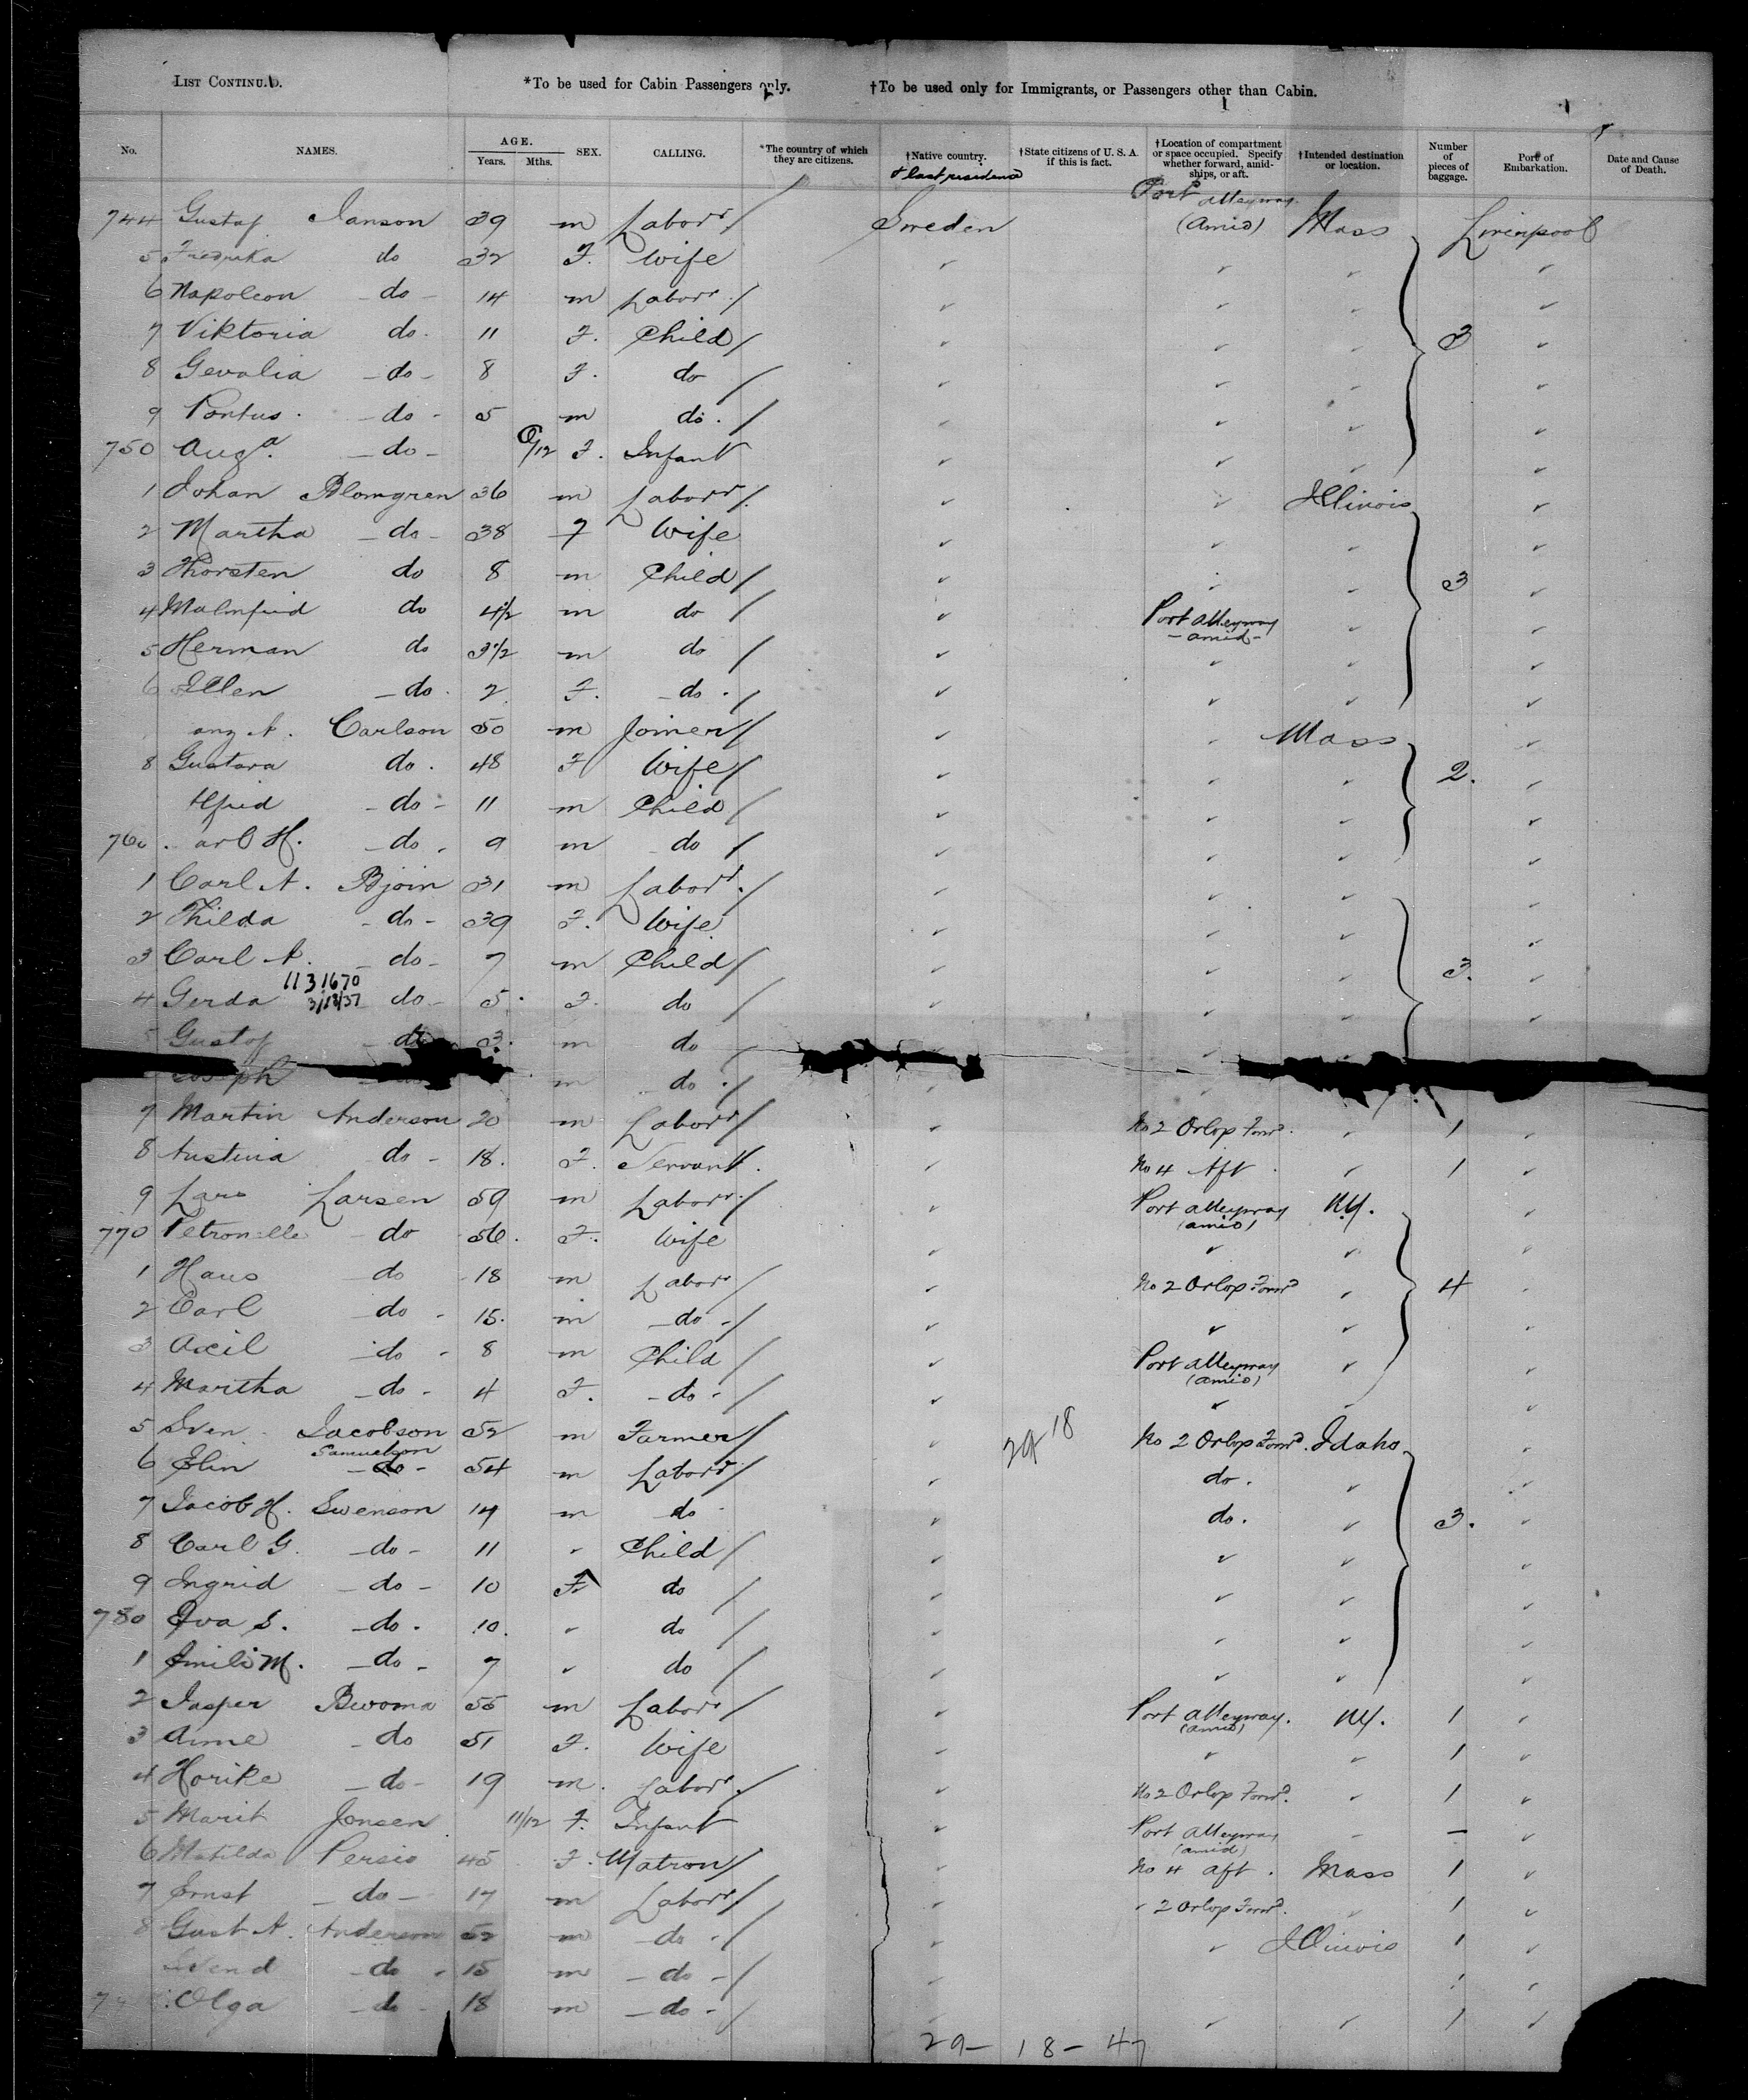 LIST CONTINU D. *To be used for Cabin Passengers only. †To be used only for Immigrants, or Passengers other than Cabin.
No. NAMES. AGE. Years. Mths. SEX. CALLING. *The country of which they are citizens. †Native country. & last residence †State citizens of U. S. A. if this is fact. †Location of compartment or space occupied. Specify whether forward, amidships, or aft. †Intended destination or location. Number of pieces of baggage. Port of Embarkation. Date and Cause of Death.
744 Gustaf Janson 39 m Labor / Sweden Port alleyway (Amid) Mass Liverpool
5 Fredrika do 32 F. Wife ✓ ✓ ✓ ✓
6 Napoleon - do - 14 m Labor / ✓ ✓ ✓ ✓
7 Viktoria do. 11 F. Child / ✓ ✓ ✓ 3 ✓
8 Gevalia - do - 8 F. do / ✓ ✓ ✓ ✓
9 Pontus. - do - 5 m do. / ✓ ✓ ✓ ✓
750 Auga. - do - /12 F. Infant ✓ ✓ ✓ ✓
1 Johan Blomgren 36 m Labor / ✓ ✓ Illinois ✓
2 Martha - do - 38 F Wife ✓ ✓ ✓ ✓
3 Thorsten do 8 m Child / ✓ ✓ ✓ 3 ✓
4 Malmfrid do 4 1/2 m do / ✓ Port Alleyway - amid - ✓ ✓
5 Herman do 3 1/2 m do / ✓ ✓ ✓ ✓
6 Ellen - do. 2 F. - do. / ✓ ✓ ✓ ✓
Carlson 50 m Joiner / ✓ ✓ Mass ✓
8 Gustava do. 48 F Wife / ✓ ✓ ✓ 2. ✓
lfrid - do - 11 m Child / ✓ ✓ ✓ ✓
760 arl H. - do. 9 m do / ✓ ✓ ✓ ✓
1 Carl A. Bjoin 31 m Labor / ✓ ✓ ✓ ✓
2 Thilda - do - 39 F. Wife ✓ ✓ ✓ ✓
3 Carl A. - do - 7 m Child / ✓ ✓ ✓ 3. ✓
11 31670
4 Gerda 3/18/37 do - 5. F. do / ✓ ✓ ✓ ✓
5 Gustaf - do 3. m do /
Joseph m do. / ✓
7 Martin Anderson 20 m Labor / ✓ No 2 Orlop Forwd. ✓ 1 ✓
8 Austina do - 18. F. Servant. ✓ No 4 Aft. ✓ 1 ✓
9 Lars Larsen 59 m Labor / ✓ Port alleyway (amid) N.Y. ✓
770 Petronelle do 56. F. Wife ✓ ✓ ✓ ✓
1 Hans do 18 m Labor / ✓ No 2 Orlop Forwd ✓ 4
2 Carl do - 15. m - do - / ✓ ✓ ✓
3 Axil - do - 8 m Child / ✓ Port alleyway (amid) ✓ ✓
4 Martha - do - 4 F. - do - / ✓ ✓ ✓
5 Sven Jacobson 52 m Farmer / ✓ 29 18 No 2 Orlop Forwd. Idaho
6 Elin Samuelson - do - 54 m Labor / ✓ do. ✓
7 Jacob H. Swenson 14 m do - ✓ do. ✓ 3. ✓
8 Carl G. - do - 11 ✓ Child / ✓ ✓ ✓ ✓
9 Ingrid - do - 10 F. do / ✓ ✓ ✓ ✓
780 Eva S. - do. 10. ✓ do / ✓ ✓ ✓ ✓
1 Emili M. - do - 7 ✓ do / ✓ ✓ ✓ ✓
2 Jasper 55 m Labor / ✓ Port alleyway. (amid) NY. 1 ✓
3 - do 51 F. Wife ✓ ✓ ✓ 1 ✓
4 Horike - do - 19 m. Labor / ✓ No 2 Orlop Forwd. ✓ 1 ✓
5 Marit Jonsen 11/12 F. Infant ✓ Port alleyway (amid) - - ✓
6 Matilda Persio 45 F. Matron / ✓ No 4 aft. Mass 1 ✓
7 Ernst - do - 17 m Labor / ✓ ✓ 2 Orlop Forwd. ✓ 1 ✓
8 Gust A. Anderson 52 m - do - / ✓ ✓ Illinois 1 ✓
- do - 15 m - do - / ✓ ✓
7 Olga - do - 18 m - do - / ✓ ✓ 1 ✓
29 - 18 - 47